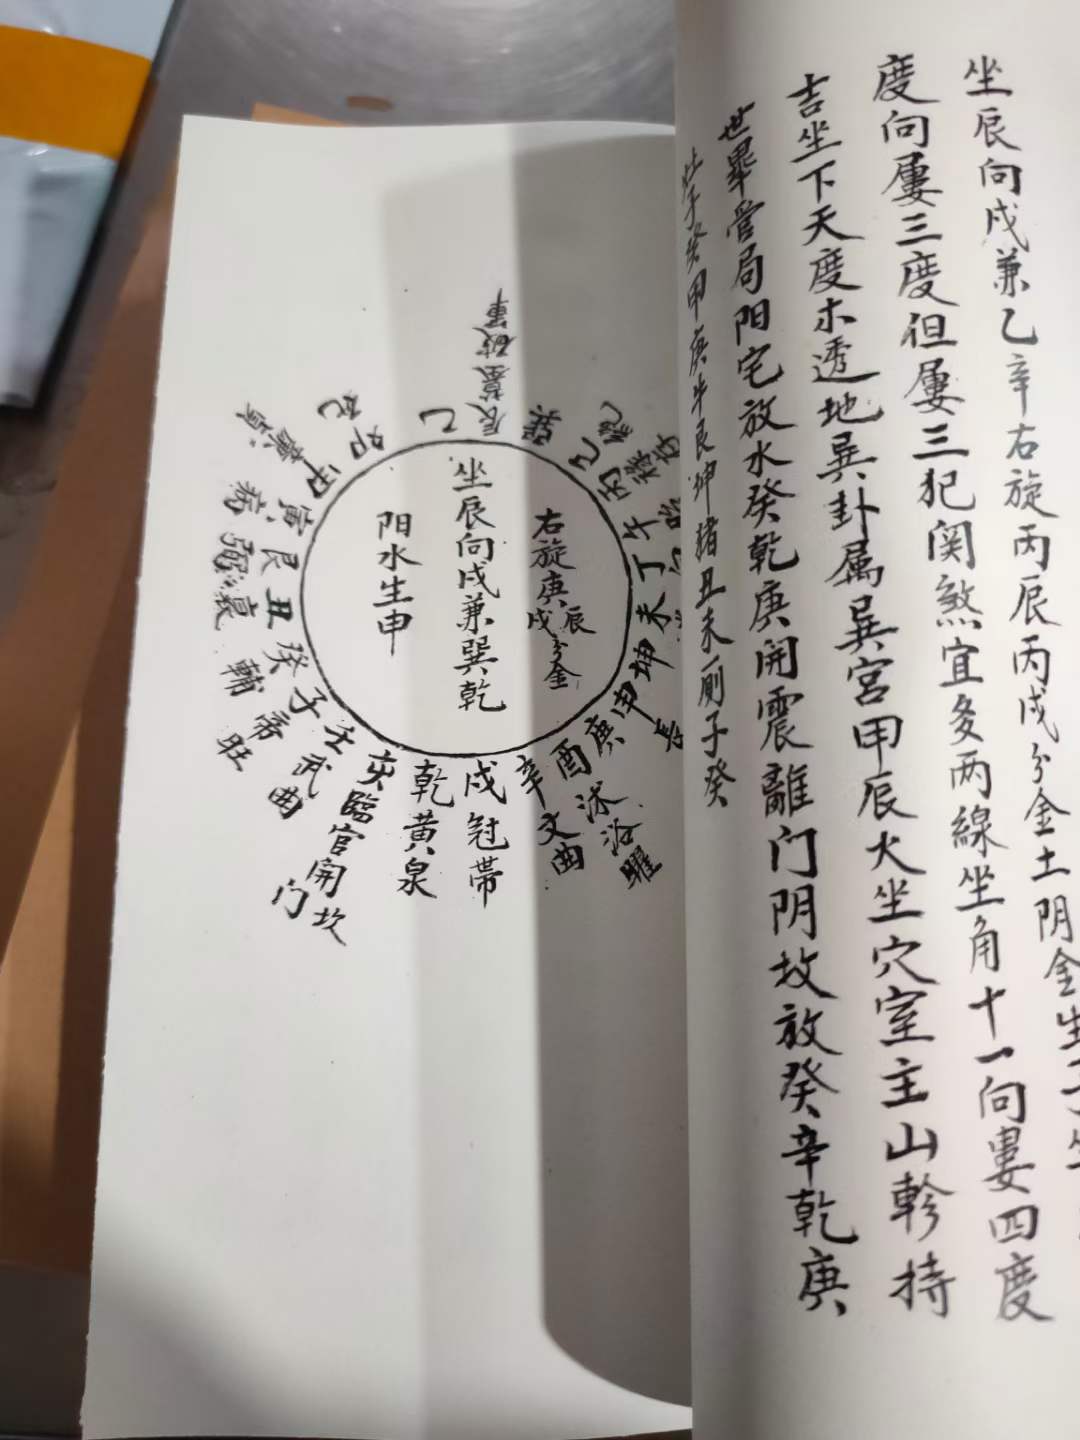 坐辰向戍兼乙辛右旋丙辰丙戍分金土阴金生
度向屢三度但屢三犯関煞宜多两線坐角十一向婁四度
吉坐下天度木透地巽卦属巽宮甲辰火坐穴室主山軫持
世畢管局阳宅放水癸乾庚開震離门阴坟放癸辛乾庚
灶子癸甲庚牛艮坤猪丑未厠子癸
右旋庚辰戍分金
坐辰向戍兼巽乾
阳水生申
辰墓破軍
巽
巳絶
丙祿存
午
丁
未
坤
申長
庚
酉沐浴曜
辛文曲
戍冠帯
乾黄泉
亥臨官開坎门
壬武曲
子帝旺
癸輔
丑衰
艮
寅病
甲
卯死
乙